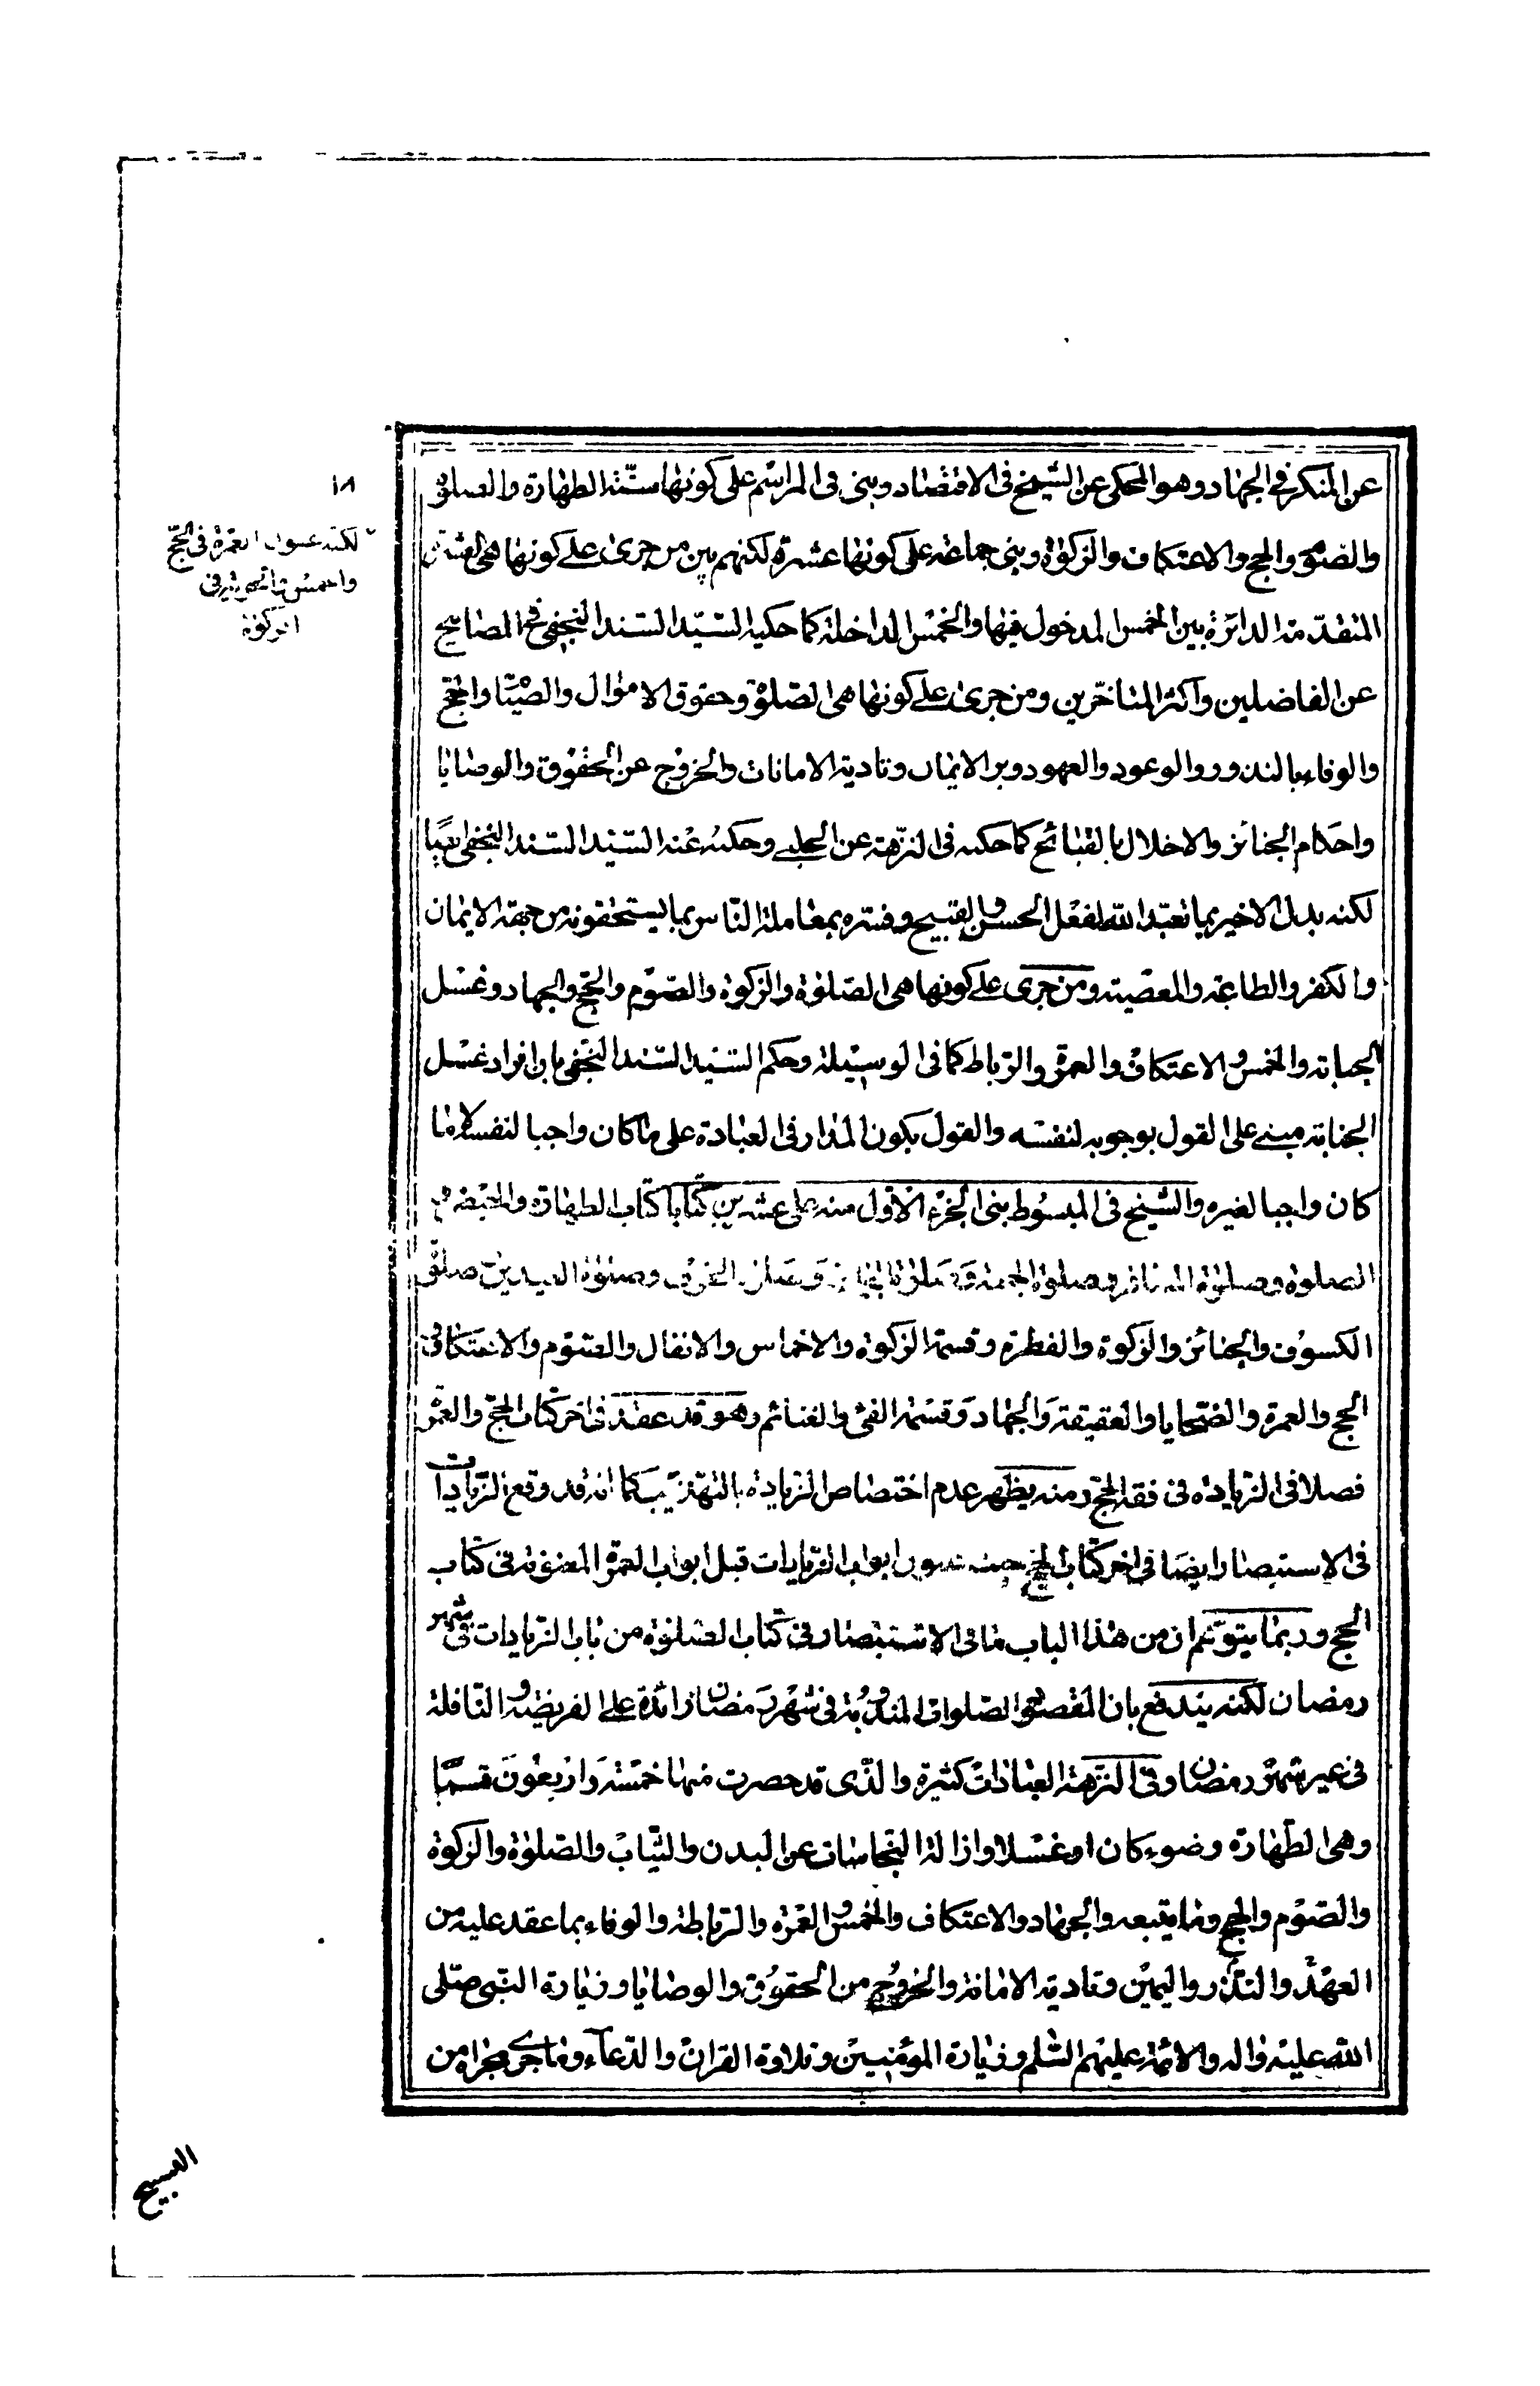 عن المنكر في الجهاد وهو المحكى عن الشيخ في الاقتصاد وبنى في المراسم على كونها ستّة الطهارة والصلوة
والصّوم والحج والاعتكاف والزكوة وبنى جماعة على كونها عشرة لكنهم بين من جرى على كونها هى العشرة
المتقدّمة الدائرة بين الخمس المدخول فيها والخمس الداخلة كما حكيه السّيّد السّند النجفي في المصابيح
عن الفاضلين واكثر المتاخّرين ومن جرى على كونها هى الصّلوة وحقوق الاموال والصّيام والحجّ
والوفاء بالنذور والوعود والعهود وبر الايمان وتادية الامانات والخروج عن الحقوق والوصايا
واحكام الجنائز والاخلال بالقبائح كما حكه في النزهة عن الحلبي وحكه عنه السّيّد السّند النجفي ايضًا
لكنه بدل الاخير بما تعبّد الله لفعل الحسن والقبيح وفسّره بمعاملة النّاس بما يستحقونه من جهة الايمان
والكفر والطاعة والمعصية ومن جرى على كونها هى الصّلوة والزكوة والصّوم والحجّ والجهاد وغسل
الجنابة والخمس والاعتكاف والعمرة والرّباط كما في الوسيلة وحكم السّيّد السّند النجفي بان افراد غسل
الجنابة مبنى على القول بوجوبه لنفسه والقول بكون المدار في العبادة على ما كان واجبا لنفسه لا ما
كان واجبا لغيره والشّيخ في المبسوط بنى الجزء الاوّل منه على عشرين كتابا كتاب الطهارة والحيض و
الصلوة وصلوة المسافر وصلوة الجمعة وصلوة الخوف وصلوة العيدين وصلوة
الكسوف والجنائز والزكوة والفطرة وقسمة الزكوة والاخماس والانفال والصّوم والاعتكاف و
الحج والعمرة والضّحايا والعقيقة والجهاد وقسمة الفئ والغنائم وهو قد عقد في اخر كتاب الحجّ والعمرة
فصلا في الزيادة في فقه الحجّ ومنه يظهر عدم اختصاص الزيادة بالتهذيب كما انه قد وقع الزّيادات
في الاستبصار ايضا في اخر كتاب الحج حيث ابواب الزيادات قبل ابواب العمرة في كتاب
الحج وربما يتوهّم ان من هذا الباب ما في الاستبصار في كتاب الصّلوة من باب الزيادات في شهر
رمضان لكنه يندفع بان المقصود الصّلوات المندوبة في شهر رمضان زائدة على الفريضة والنّافلة
في غير شهر رمضان وفي النزهة العبادات كثيرة والّذى قد حصرت منها خمسة واربعون قسمًا
وهى الطّهارة وضوء كان او غسلا وازالة النجاسات عن البدن والثّياب والصّلوة والزكوة
والصّوم والحج وما يتبعه والجهاد والاعتكاف والخمس والعمرة والرّباطة والوفاء بما عقد عليه من
العهد والنّذر واليمين وتادية الامانة والخروج من الحقوق والوصايا وزيارة النّبى صلّى
الله عليه واله والائمة عليهم السّلم وزيارة المؤمنين وتلاوة القران والدّعاء وما جرى مجراه من
١٨
لكنه العمرة في الحجّ
والخمس في
الزكوة
التسبيح